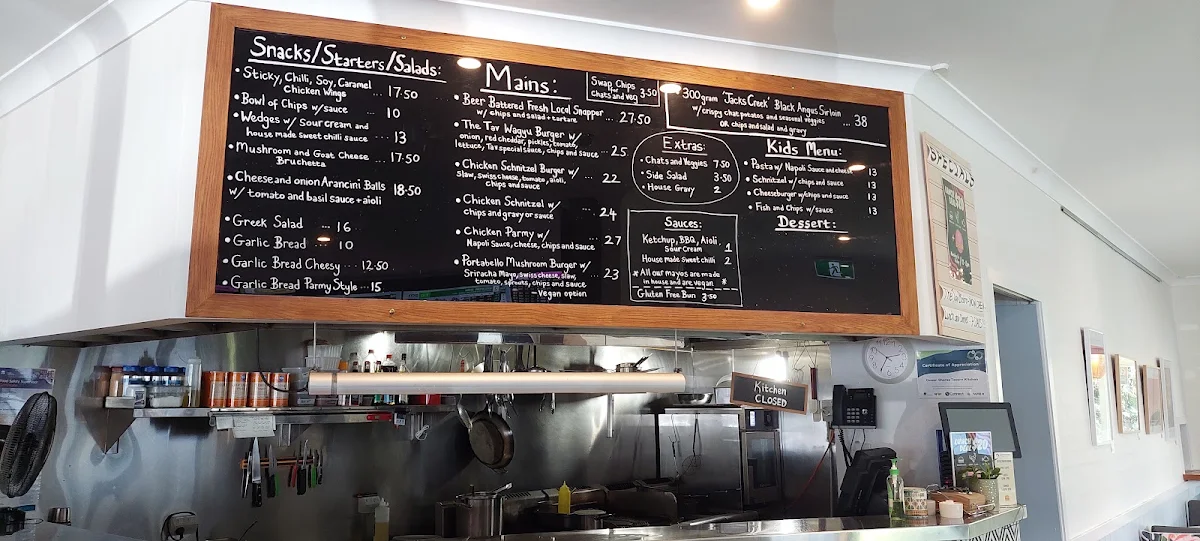 Snacks/Starters/Salads:
• Sticky, Chilli, Soy, Caramel
Chicken Wings ... 17.50
• Bowl of Chips w/sauce ... 10
• Wedges w/ sour cream and
house made sweet chilli sauce ... 13
• Mushroom and Goat Cheese
Bruchetta ... 17.50
• Cheese and onion Arancini Balls
w/ tomato and basil sauce + aioli 18.50
• Greek Salad ... 16
• Garlic Bread ... 10
• Garlic Bread Cheesy ... 12.50
• Garlic Bread Parmy Style ... 15
Mains:
Swap Chips
for
chats and veg 3.50
• Beer Battered Fresh Local Snapper
w/ chips and salad + tartare ... 27.50
• The Tav Wagyu Burger w/
onion, red cheddar, pickles, tomato,
lettuce, Tav special sauce, chips and sauce ... 25
• Chicken Schnitzel Burger w/
slaw, swiss cheese, tomato, aioli,
chips and sauce ... 22
• Chicken Schnitzel w/
chips and gravy or sauce ... 24
• Chicken Parmy w/
Napoli Sauce, cheese, chips and sauce ... 27
• Portabello Mushroom Burger w/
Sriracha Mayo, swiss cheese, slaw,
tomato, sprouts, chips and sauce ... 23
- Vegan option
300gram 'Jacks Creek' Black Angus Sirloin
w/ crispy chat potatoes and seasonal veggies
OR chips and salad and gravy ... 38
Extras:
• Chats and Veggies 7.50
• Side Salad 3.50
• House Gravy 2
Sauces:
Ketchup, BBQ, Aioli
Sour Cream 1
House made sweet chilli 2
* All our mayos are made
in house and are vegan *
Gluten Free Bun 3.50
Kids Menu:
• Pasta w/ Napoli Sauce and cheese 13
• Schnitzel w/ chips and sauce 13
• Cheeseburger w/ chips and sauce 13
• Fish and Chips w/ sauce 13
Dessert:
SPECIALS
Kitchen
CLOSED
Certificate of Appreciation